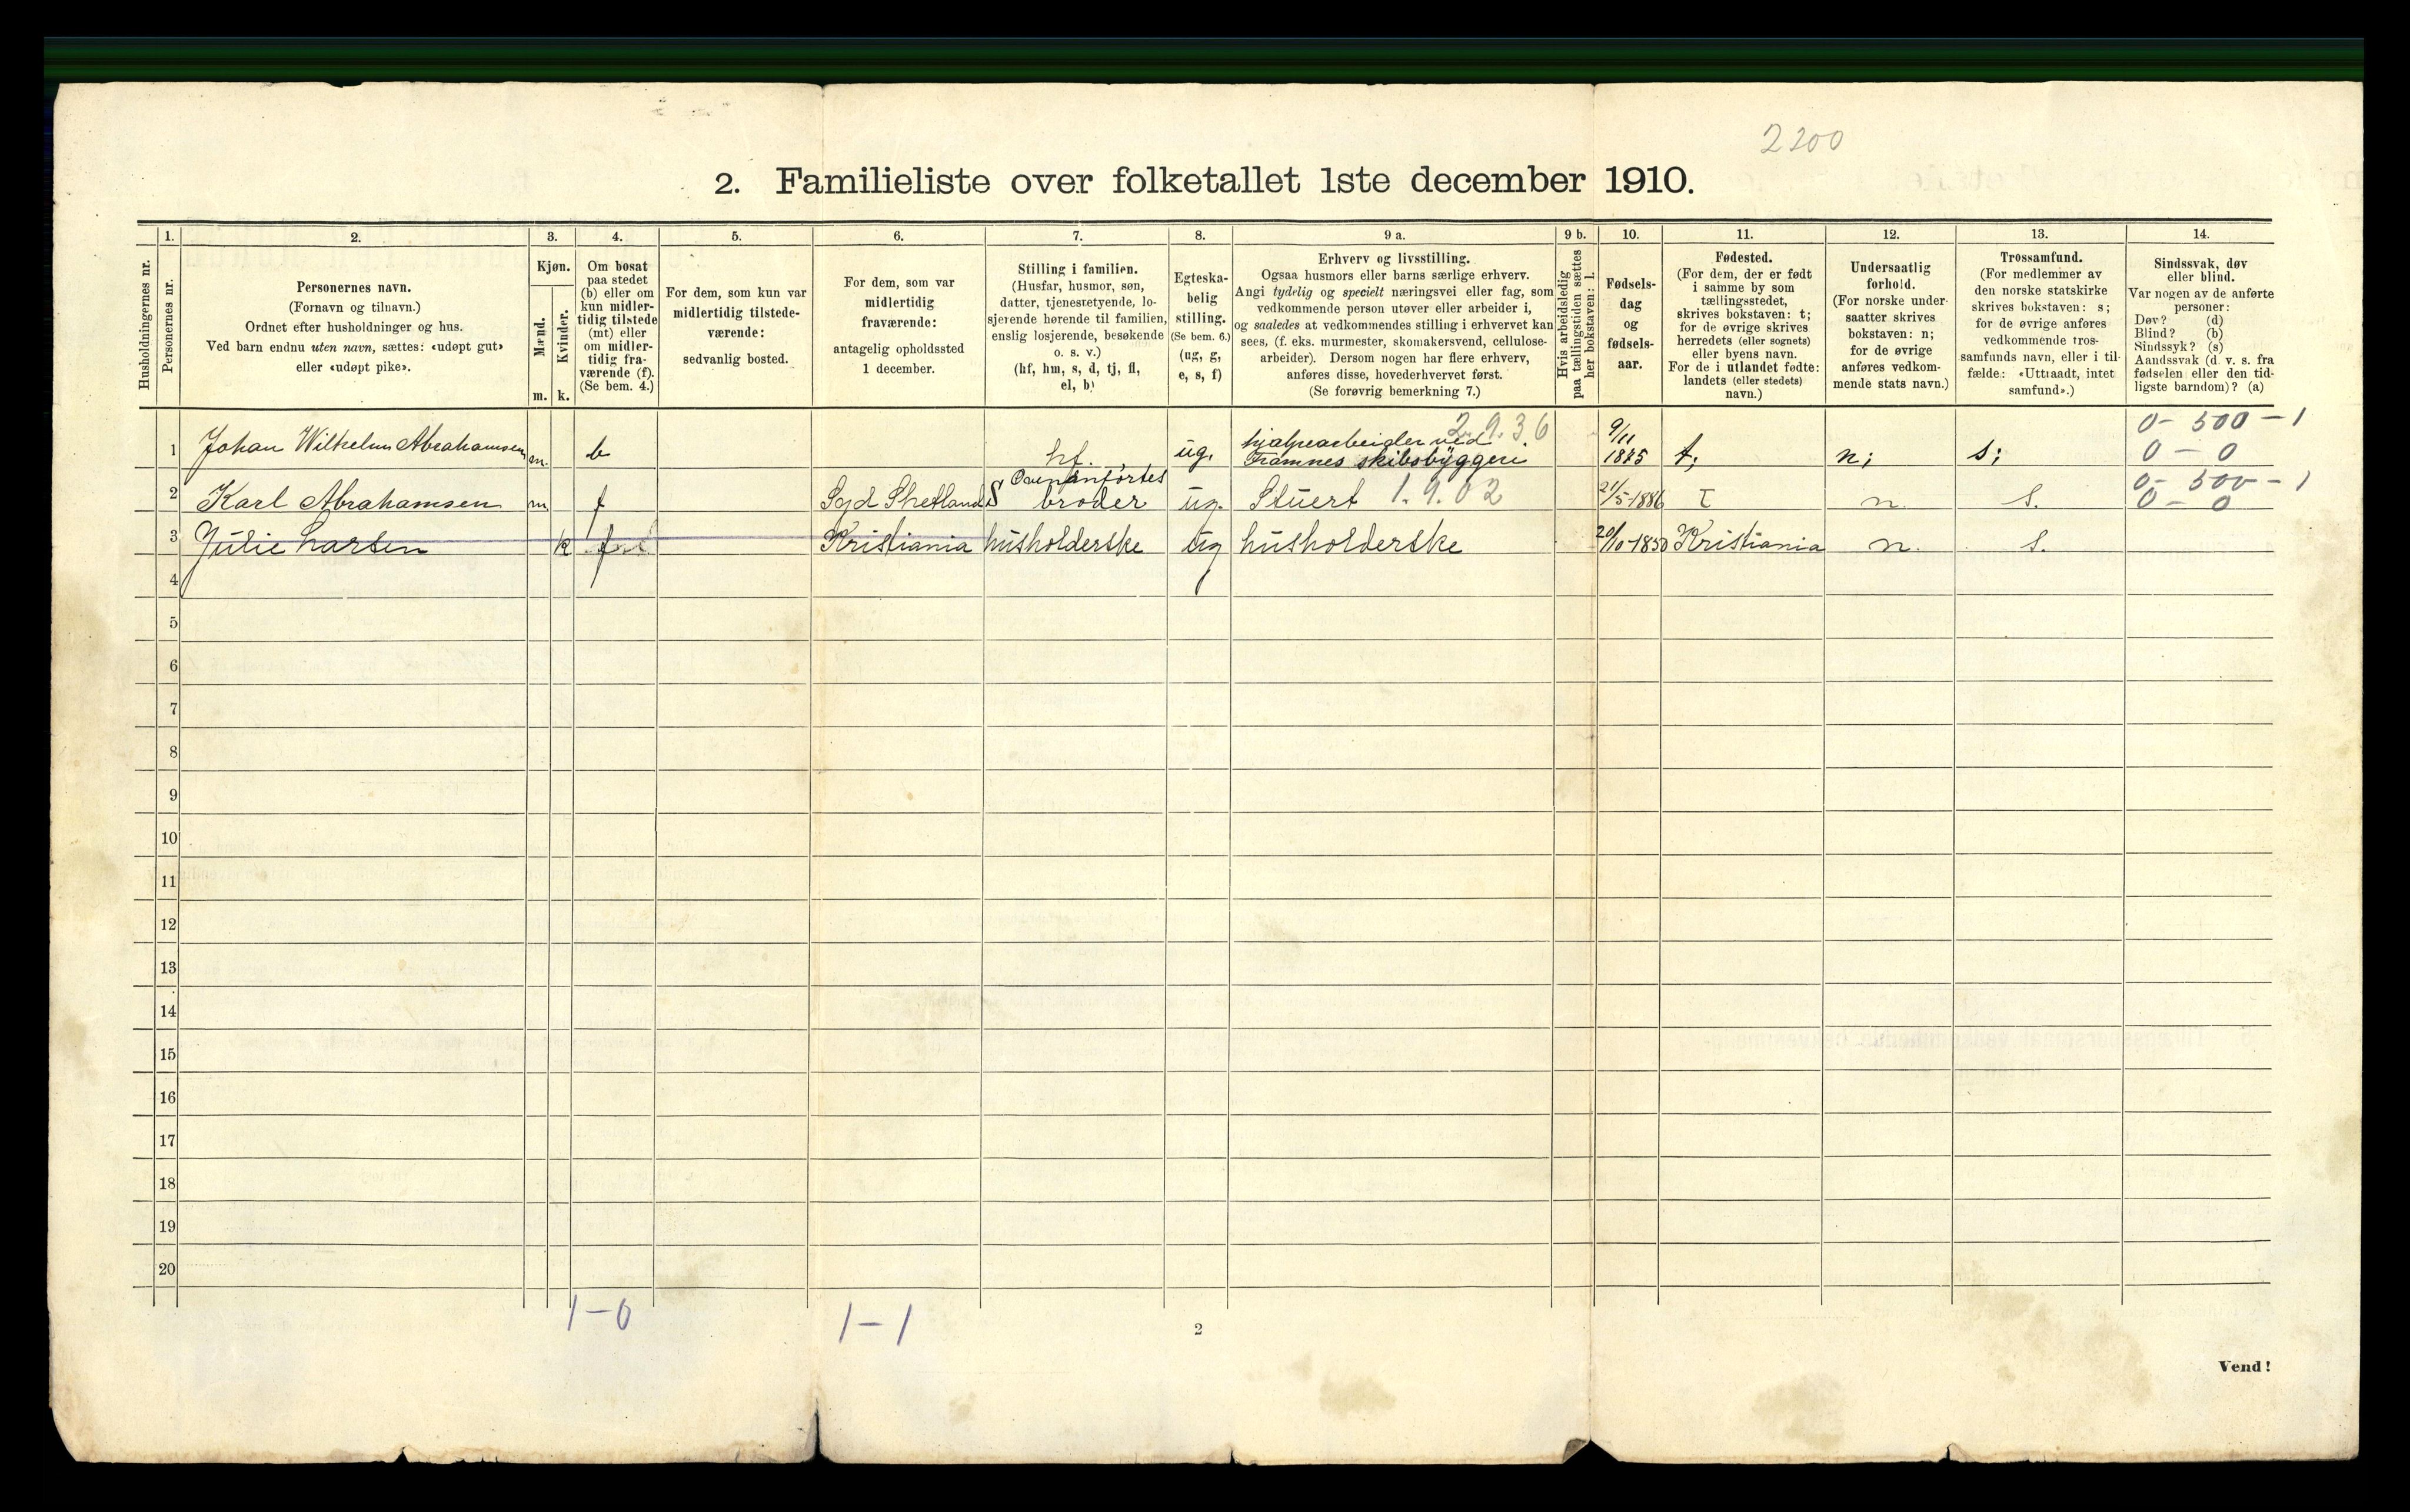 2200
2. Familieliste over folketallet 1ste december 1910.
Husholdningernes nr.
1.
Personernes nr.
2.
Personernes navn.
(Fornavn og tilnavn.)
Ordnet efter husholdninger og hus.
Ved barn endnu uten navn, sættes: «udøpt gut»
eller «udøpt pike».
3.
Kjøn.
Mænd.
Kvinder.
m. k.
4.
Om bosat
paa stedet
(b) eller om
kun midler-
tidig tilstede
(mt) eller
om midler-
tidig fra-
værende (f).
(Se bem. 4.)
5.
For dem, som kun var
midlertidig tilstede-
værende:
sedvanlig bosted.
6.
For dem, som var
midlertidig
fraværende:
antagelig opholdssted
1 december.
7.
Stilling i familien.
(Husfar, husmor, søn,
datter, tjenestetyende, lo-
sjerende hørende til familien,
enslig losjerende, besøkende
o. s. v.)
(hf, hm, s, d, tj, fl,
el, b)
8.
Egteska-
belig
stilling.
(Se bem. 6.)
(ug, g,
e, s, f)
9 a.
Erhverv og livsstilling.
Ogsaa husmors eller barns særlige erhverv.
Angi tydelig og specielt næringsvei eller fag, som
vedkommende person utøver eller arbeider i,
og saaledes at vedkommendes stilling i erhvervet kan
sees, (f. eks. murmester, skomakersvend, cellulose-
arbeider). Dersom nogen har flere erhverv,
anføres disse, hovederhvervet først.
(Se forøvrig bemerkning 7.)
9 b.
Hvis arbeidsledig
paa tællingstiden sættes
her bokstaven: l.
10.
Fødsels-
dag
og
fødsels-
aar.
11.
Fødested.
(For dem, der er født
i samme by som
tællingsstedet,
skrives bokstaven: t;
for de øvrige skrives
herredets (eller sognets)
eller byens navn.
For de i utlandet fødte:
landets (eller stedets)
navn.)
12.
Undersaatlig
forhold.
(For norske under-
saatter skrives
bokstaven: n;
for de øvrige
anføres vedkom-
mende stats navn.)
13.
Trossamfund.
(For medlemmer av
den norske statskirke
skrives bokstaven: s;
for de øvrige anføres
vedkommende tros-
samfunds navn, eller i til-
fælde: «Uttraadt, intet
samfund».)
14.
Sindssvak, døv
eller blind.
Var nogen av de anførte
personer:
Døv? (d)
Blind? (b)
Sindssyk? (s)
Aandssvak (d. v. s. fra
fødselen eller den tid-
ligste barndom)? (a)
1 Johan Wilhelm Abrahamsen m. b hf. ug. hjælpearbeider ved Framnes skibsbyggeri 2.9.36 9/11 1875 t; n; s; 0-500-1 0-0
2 Karl Abrahamsen m f Syd Shetland S Ovenanførtes broder ug. Stuert 1.9.02 21/5-1886 t n. S. 0-500-1 0-0
3 Julie Larsen k f Kristiania husholderske ug husholderske 20/10-1850 Kristiania n. S.
4
5
6
7
8
9
10
11
12
13
14
15
16
17
18
19
20
1-0 1-1
2
Vend!